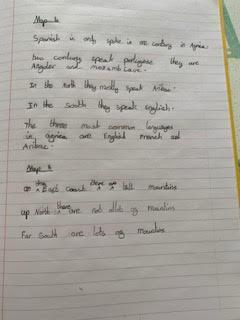 Map 1
Spanish is only spoke in one contury in Africa.
two conturys speak portugese they are
Angoler and mozambwe.
In the North they mostly speak Arabic.
In the South they speak English.
The three most common languages
in africa are English French and
Arabic.
Map 2
on the East coast there are lots mountins
up North there are not allot of mountins
Far South are lots of mountins